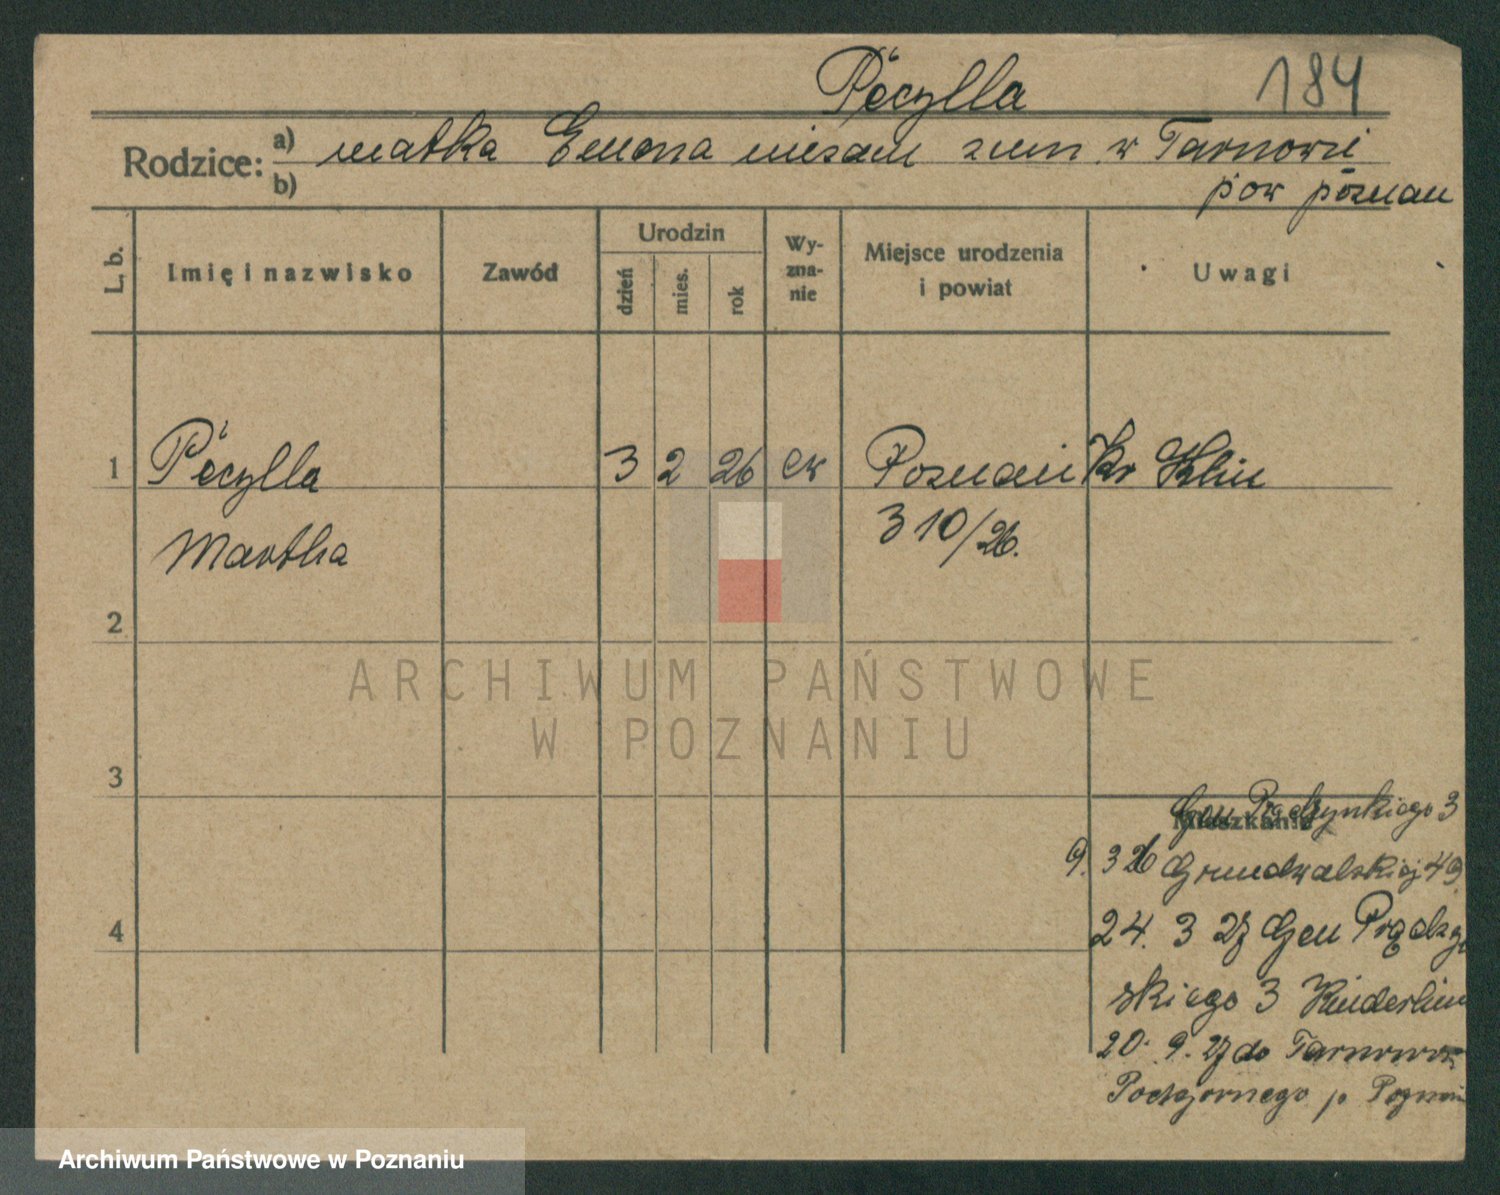 Pécylla 184
Rodzice: a) matka Emma niezam zam. w Tarnowie
b) pow poznan
L. b. Imię i nazwisko Zawód Urodzin dzień mies. rok Wyzna-nie Miejsce urodzenia i powiat Uwagi
1 Pécylla 3 2 26 ew Poznań Kr Klin
Martha 3 10/26.
2
ARCHIWUM PAŃSTWOWE
W POZNANIU
3
Gen Prądzynkiego 3
Mieszkanie
9. 3 26 Grundwalskiej 49
4
24. 3 27 Gen Prądzy
skiego 3 Kinderheim
20. 9. 27 do Tarnowa
Podgornego p Poznań
Archiwum Państwowe w Poznaniu